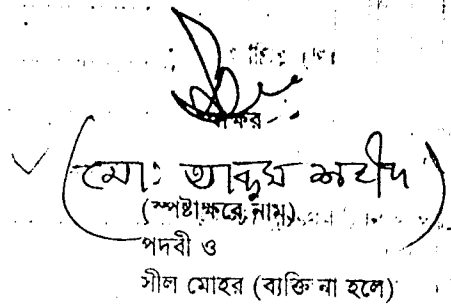 স্বাক্ষর
(মোঃ আব্দুস শহীদ)
(স্পষ্টাক্ষরে নাম)
পদবী ও
সীল মোহর (ব্যক্তি না হলে)